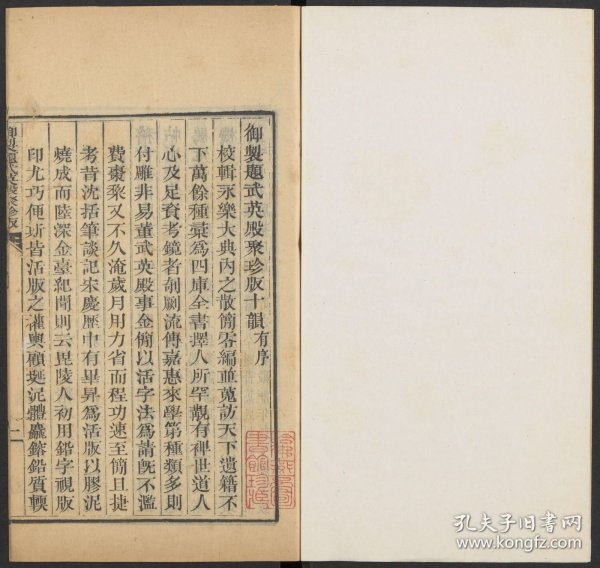 御製題武英殿聚珍版十韻有序
校輯永樂大典內之散簡零編並蒐訪天下遺籍不
下萬餘種彚爲四庫全書擇人所罕覯有裨世道人
心及足資考鏡者剞劂流傳嘉惠來學第種類多則
付雕非易董武英殿事金簡以活字法爲請旣不濫
費棗棃又不久淹歲月用力省而程功速至簡且捷
考昔沈括筆談記宋慶歷中有畢昇爲活版以膠泥
燒成而陸深金臺紀聞則云毘陵人初用鉛字視版
印尤巧便斯皆活版之權輿顧埏泥體麤鎔鉛質輭
御製題武英殿聚珍版
一
孔夫子旧书网
www.kongfz.com